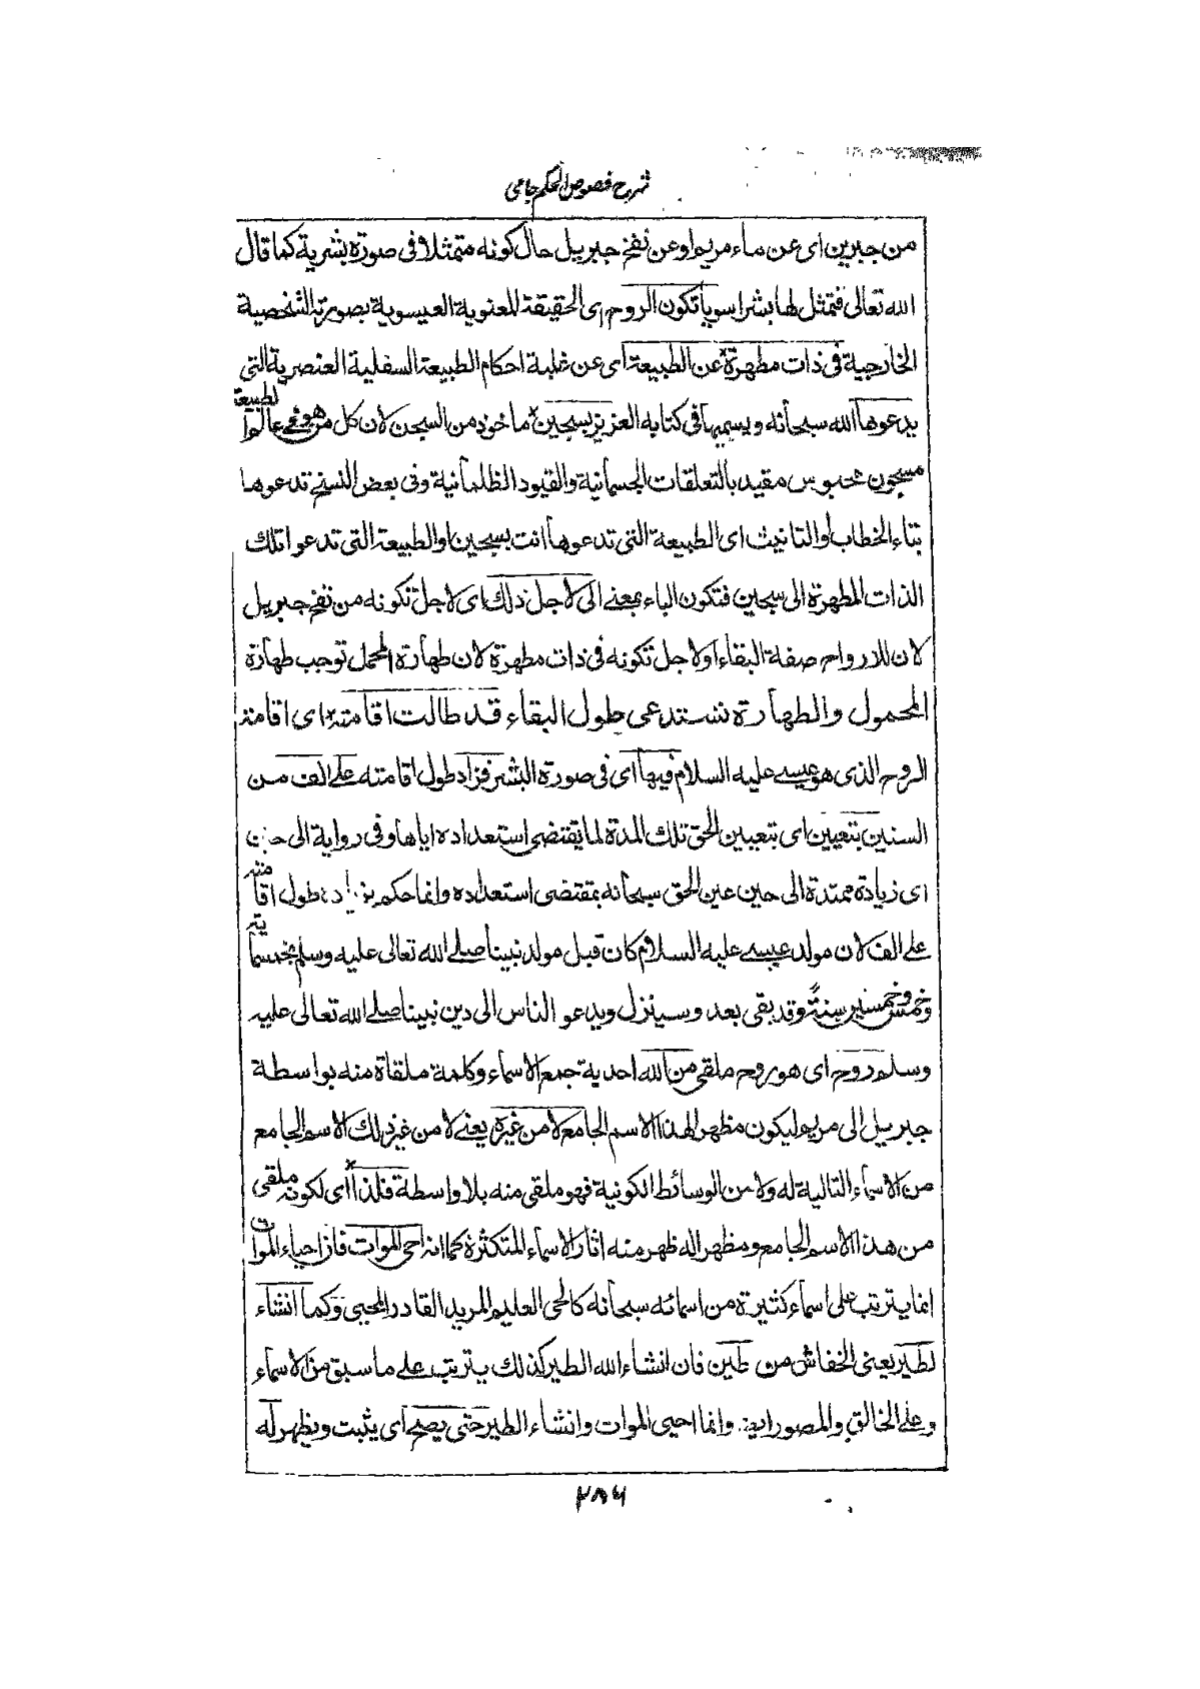 شرح فصوص الحكم جامى
من جبرين اى عن ماء مريم او عن نفخ جبريل حال كونه متمثلا فى صورة بشرية كما قال
الله تعالى فتمثل لها بشرا سويا تكون الروح اى الحقيقة المعنوية العيسوية بصورته الشخصية
الخارجية فى ذات مطهرة عن الطبيعة اى عن غلبة احكام الطبيعة السفلية العنصرية التى
يدعوها الله سبحانه ويسميها فى كتابه العزيز بسجين ماخوذ من السجن لان كل من هو فى عالم الطبيعة
مسجون محبوس مقيد بالتعلقات الجسمانية والقيود الظلمانية وفى بعض النسخ تدعوها
بتاء الخطاب او التانيث اى الطبيعة التى تدعوها انت بسجين او الطبيعة التى تدعو تلك
الذات المطهرة الى سجين فتكون الباء بمعنى الى لاجل ذلك اى لاجل تكونه من نفخ جبريل
لان للارواح صفة البقاء او لاجل تكونه فى ذات مطهرة لان طهارة المحل توجب طهارة
المحمول والطهارة تستدعى طول البقاء قد طالت اقامته اى اقامة
الروح الذى هو عيسى عليه السلام فيها اى فى صورة البشر فزاد طول اقامته على الف من
السنين بتعيين اى بتعيين الحق تلك المدة لما يقتضى استعداده اياها وفى رواية الى حين
اى زيادة ممتدة الى حين عين الحق سبحانه بمقتضى استعداده وانما حكم بزيادة طول اقامته
على الف لان مولد عيسى عليه السلام كان قبل مولد نبينا صلى الله تعالى عليه وسلم بخمسماية
وخمس وخمسين سنة وقد بقى بعد وسينزل ويدعو الناس الى دين نبينا صلى الله تعالى عليه
وسلم روح اى هو روح ملقى من الله احدية جمع الاسماء وكلمة ملقاة منه بواسطة
جبريل الى مريم ليكون مظهرا لهذا الاسم الجامع لا من غيره يعنى لا من غير ذلك الاسم الجامع
من الاسماء التالية له ولا من الوسائط الكونية فهو ملقى منه بلا واسطة فلذا اى لكونه ملقى
من هذا الاسم الجامع ومظهرا له ظهر منه اثار الاسماء المتكثرة كما انه احى الموات فان احياء الموات
انما يترتب على اسماء كثيرة من اسمائه سبحانه كالحى العليم المريد القادر المحيى وكما انشاء
لطير يعنى الخفاش من طين فان انشاء الله الطير كذلك يترتب على ما سبق من الاسماء
وعلى الخالق والمصور ايضا وانما احيى الموات وانشاء الطير حتى يصح اى يثبت ويظهر له
٢٨٦